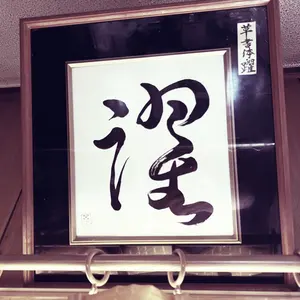 躍
草書体 躍